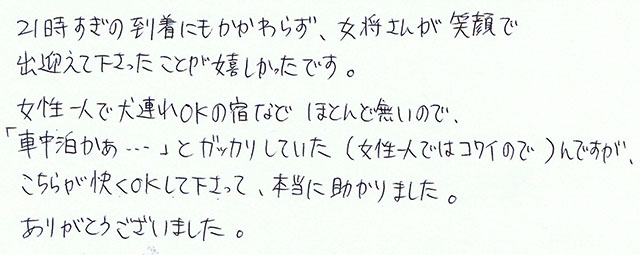 21時すぎの到着にもかかわらず、女将さんが笑顔で
出迎えて下さったことが嬉しかったです。
女性一人で犬連れOKの宿などほとんど無いので、
「車中泊かぁ…」とガッカリしていた(女性一人ではコワイので)んですが、
こちらが快くOKして下さって、本当に助かりました。
ありがとうございました。